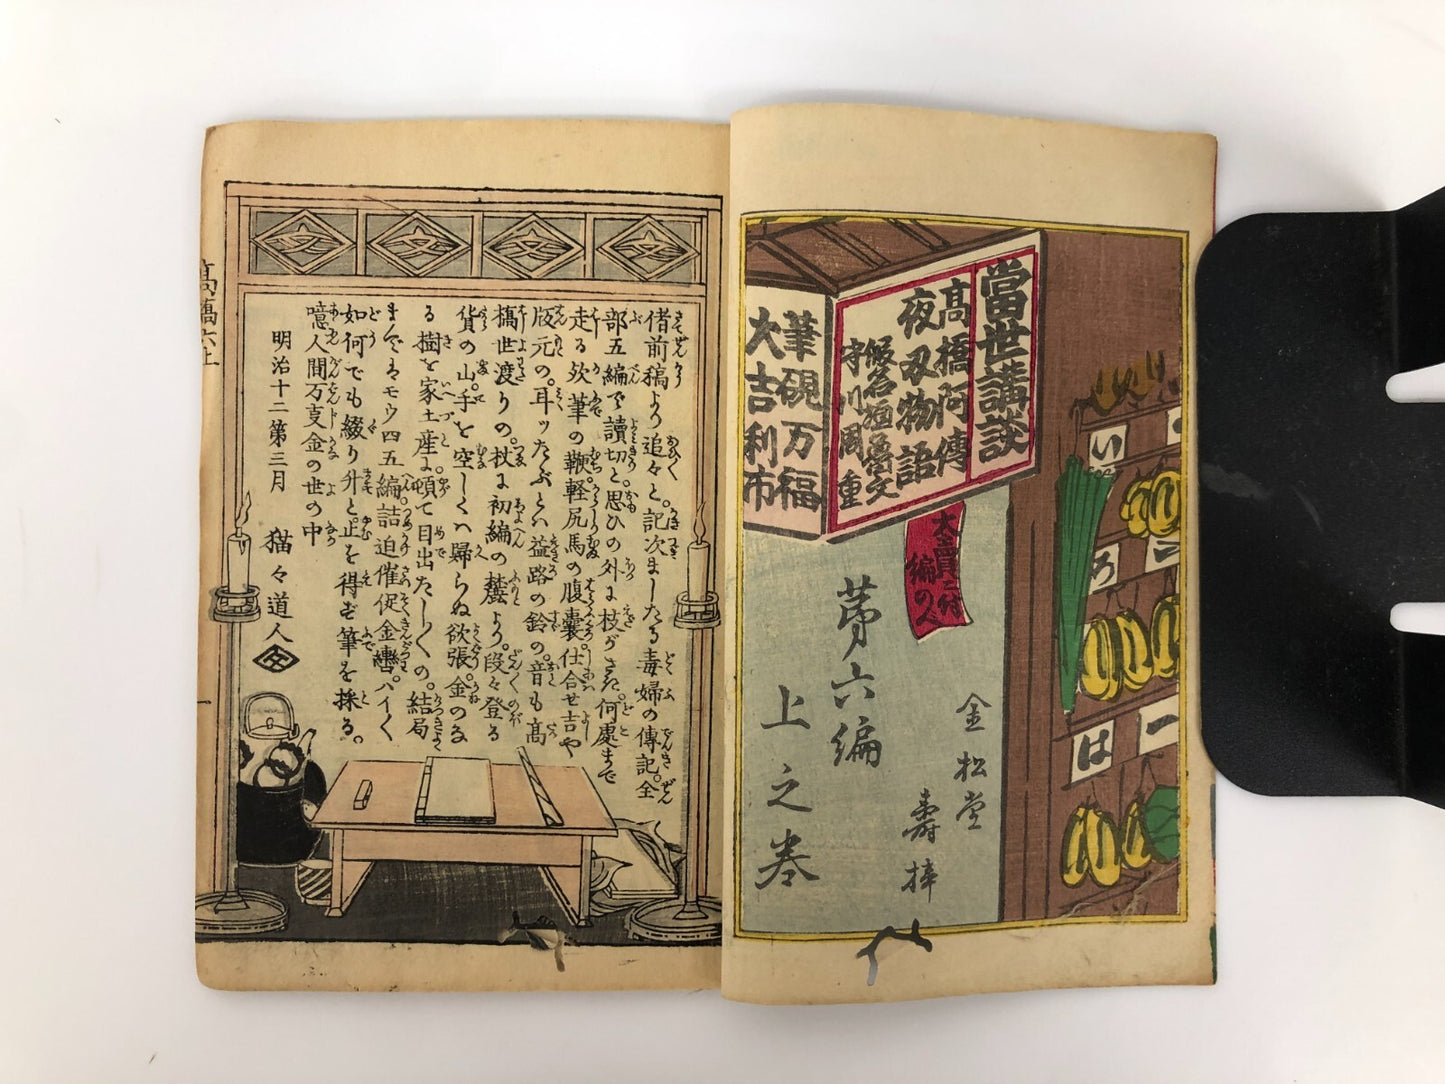 當世講談
髙橋阿傳
夜刃物語
假名垣魯文
守川周重
筆硯万福
大吉利市
大賣ニ付
編の人
い
ろ
は
ニ
一
第六編
上之巻
金松堂
壽梓
偖前稿より追々と。記次ましたる毒婦の傳記。全
部五編で讀切と。思ひの外に枝がさた。何處まで
走る欤筆の鞭。軽尻馬の腹嚢。仕合せ吉や
版元の。耳ッたぶとい益路の鈴の。音も髙
橋世渡りの。杖は初編の麓より。段々登る
貨の山。手を空しくハ歸らぬ欲張。金のな
る樹を家土産に。頓て目出たし〳〵の。結局
まんでにモウ四五編。詰迫催促金轡。ハイ〳〵
如何でも綴り升と。止を得ず筆を採る。
噫人間万支金の世の中
明治十二第三月
猫々道人
髙橋六上
一